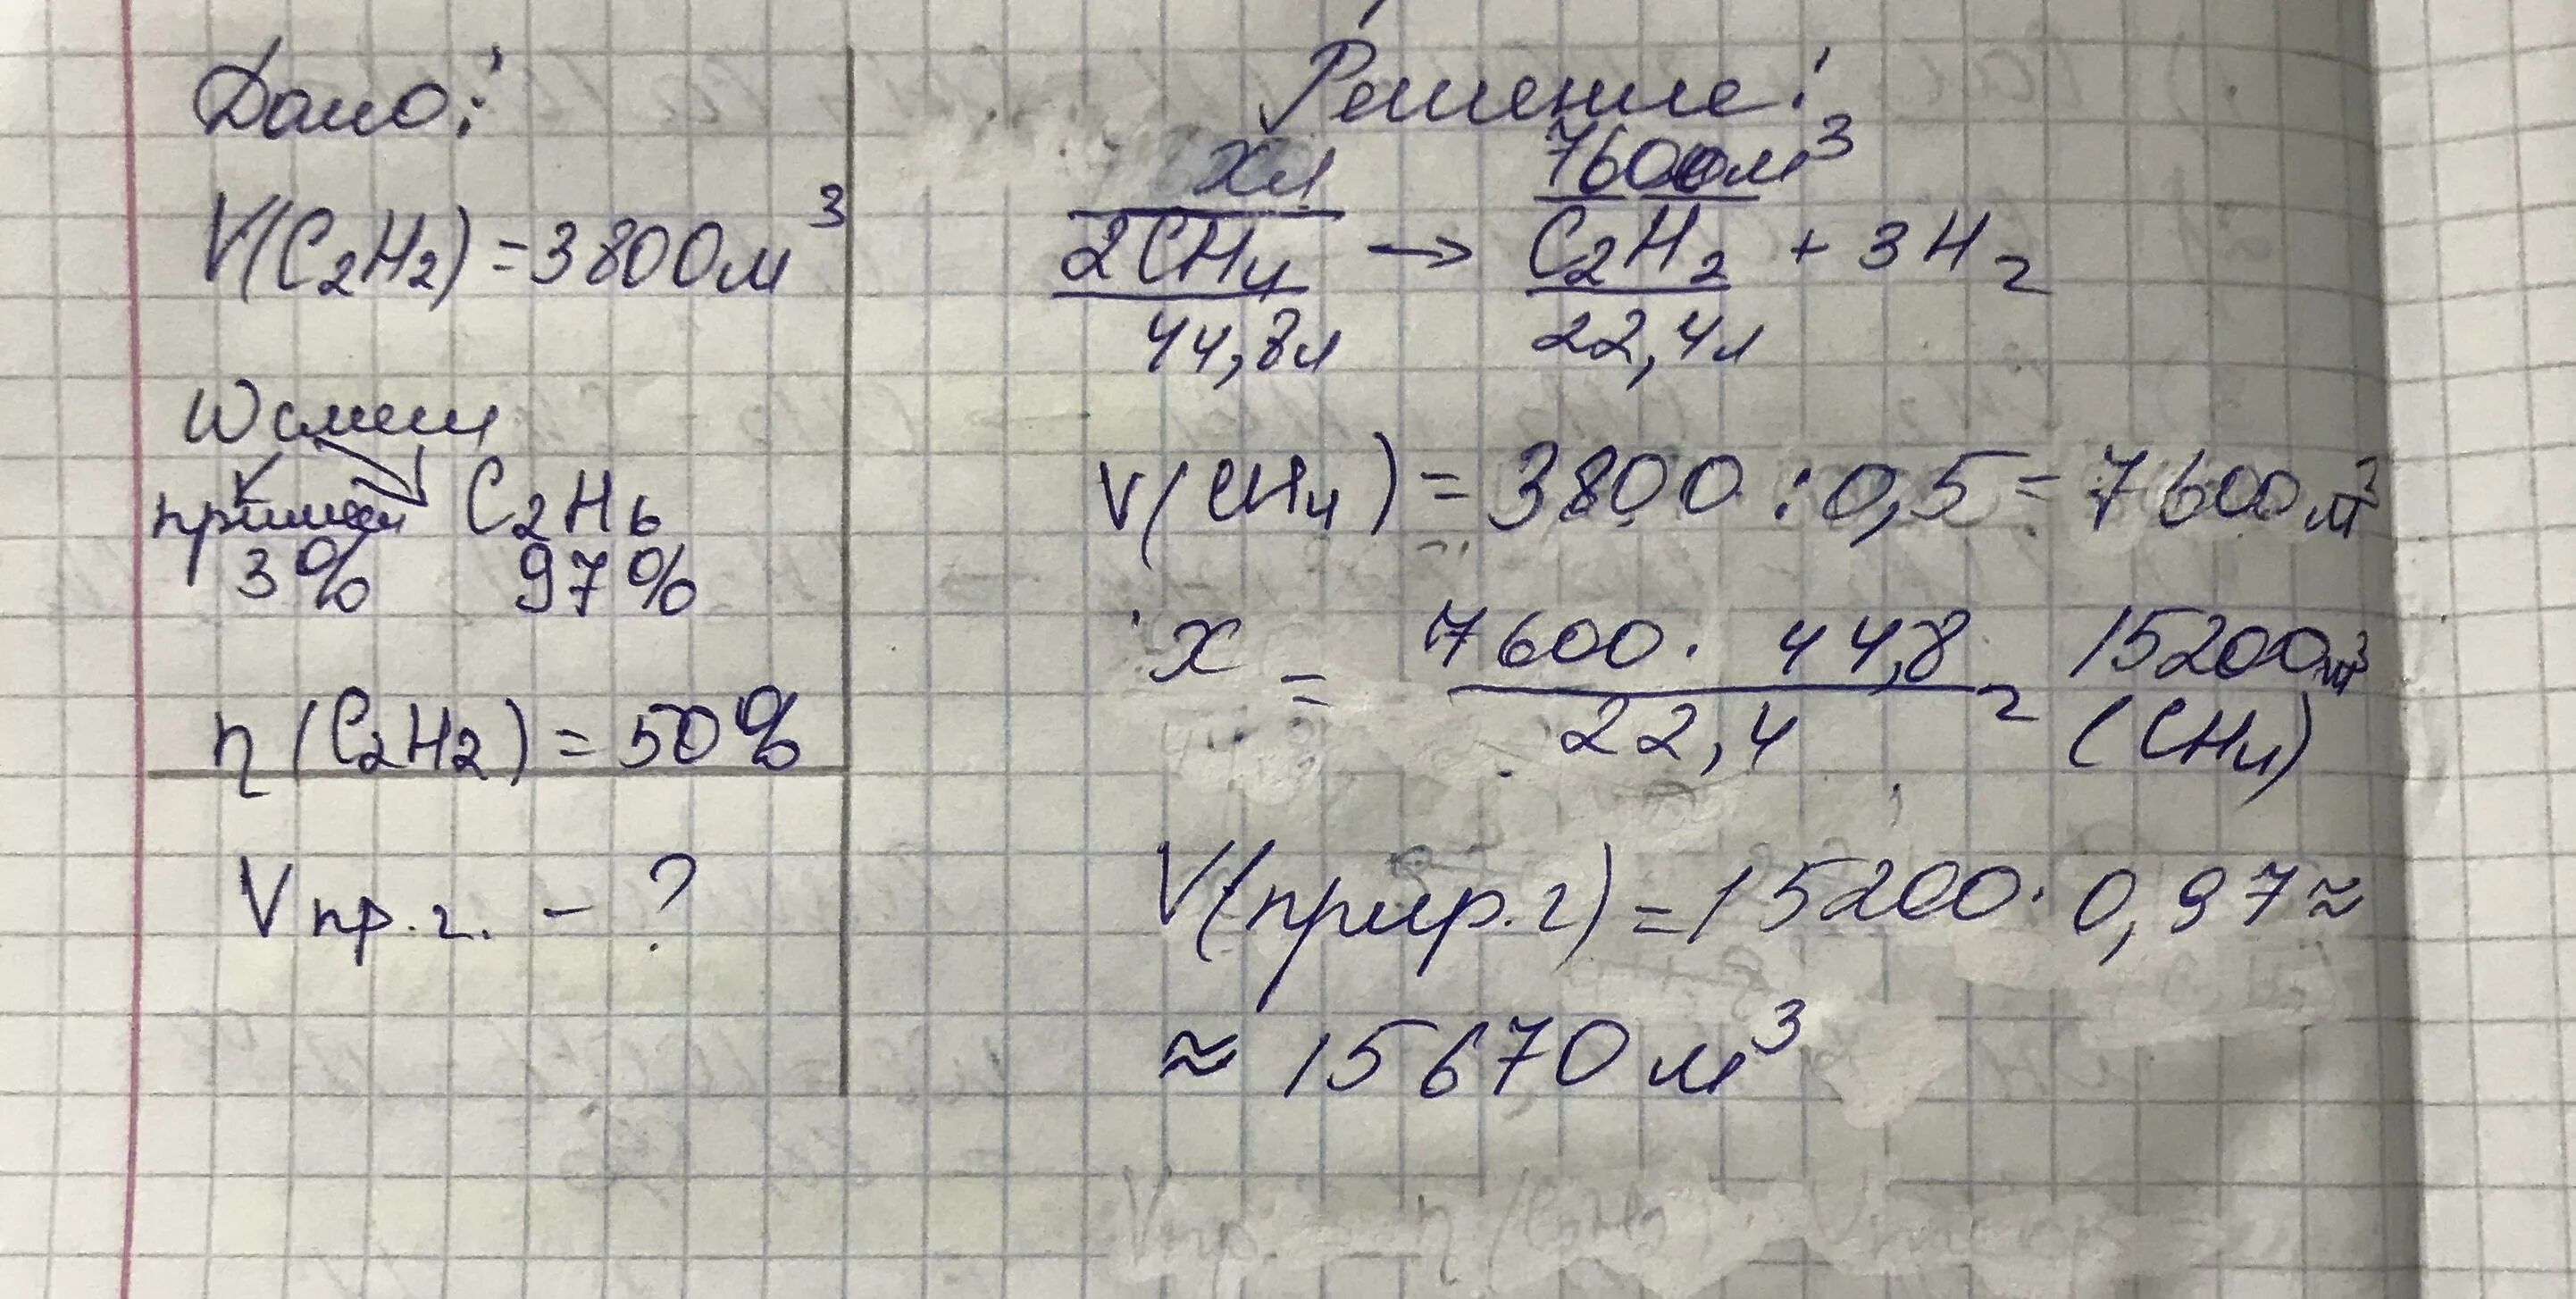 Дано:
V(C₂H₂) = 3800 м³
W смеси
примеси C₂H₆
3% 97%
η (C₂H₂) = 50%
V пр. г. - ?
Решение:
xл 7600м³
2CH₄ → C₂H₂ + 3H₂
44,8л 22,4л
V(CH₄) = 3800 : 0,5 = 7600 м³
x = 7600 · 44,8 / 22,4 = 15200м³ (CH₄)
V(прир. г) = 15200 · 0,97 ≈
≈ 15670 м³